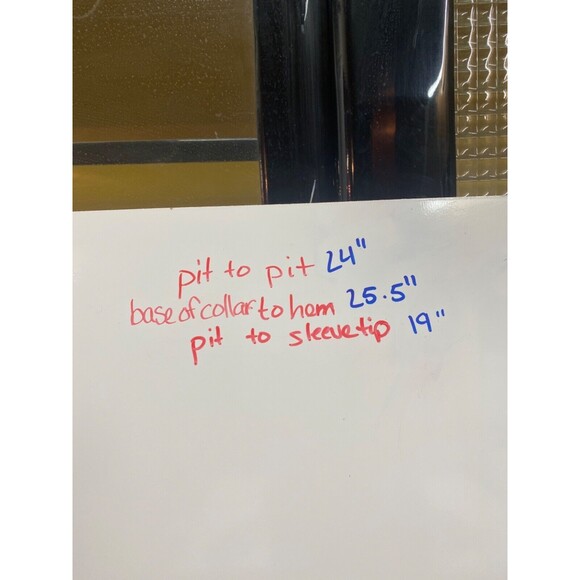 pit to pit 24"
base of collar to hem 25.5"
pit to sleeve tip 19"